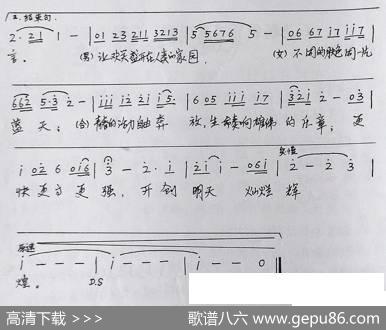 2.结束句.
2· 2 1 1 - | 01 23 211 3213 | 5 5676 5 - | 06 67 17 117
言. (男) 让欢笑 在人类的家园. (女) 不同的肤色同一片
662 5·3 2 - | 111 12 21 1 5· | 6 05 111 17 | 3 2 1 2 - 03
蓝天; (合) 青春的活力 奔放, 生命奏响雄伟的乐章; 更
1 02 6 016 | 3 - 2· 1 | 2 1 1 - 061 | 2 - 2 3
快 更高 更强, 开创明天 灿烂辉
1 - - - | 1 - - - | 1 - - 0 ‖
煌. D.S
高清下载 >>>
歌谱八六 www.gepu86.com